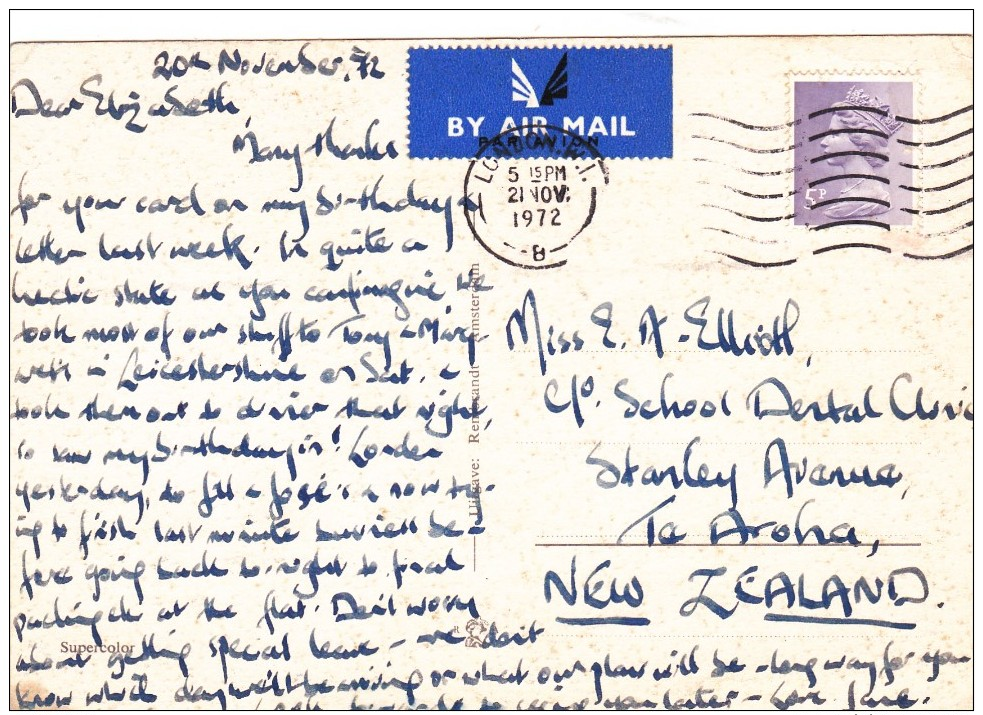 20th November, 72
Dear Elizabeth,
Many thanks
for your card on my birthday &
letter last week. In quite a
hectic state as you can imagine. We
took most of our stuff to Tony & Marg-
in Leicestershire on Sat. &
took them out to dinner that night,
to my birthday in! London
yesterday, to &
to finish last minute business be-
fore going back to-night to final
packing etc at the flat. Don't worry
about getting special leave - we don't
know which day we'll be arriving or what our plan will be - long way for you
to you later - Love Jane.
BY AIR MAIL
PAR AVION
LONDON W.1.
5 15 PM
21 NOV.
1972
B
5P
Uitgave: Rembrandt Amsterdam
Supercolor
Miss E. A. Elliott,
c/o. School Dental Clinic
Stanley Avenue,
Te Aroha,
NEW ZEALAND.